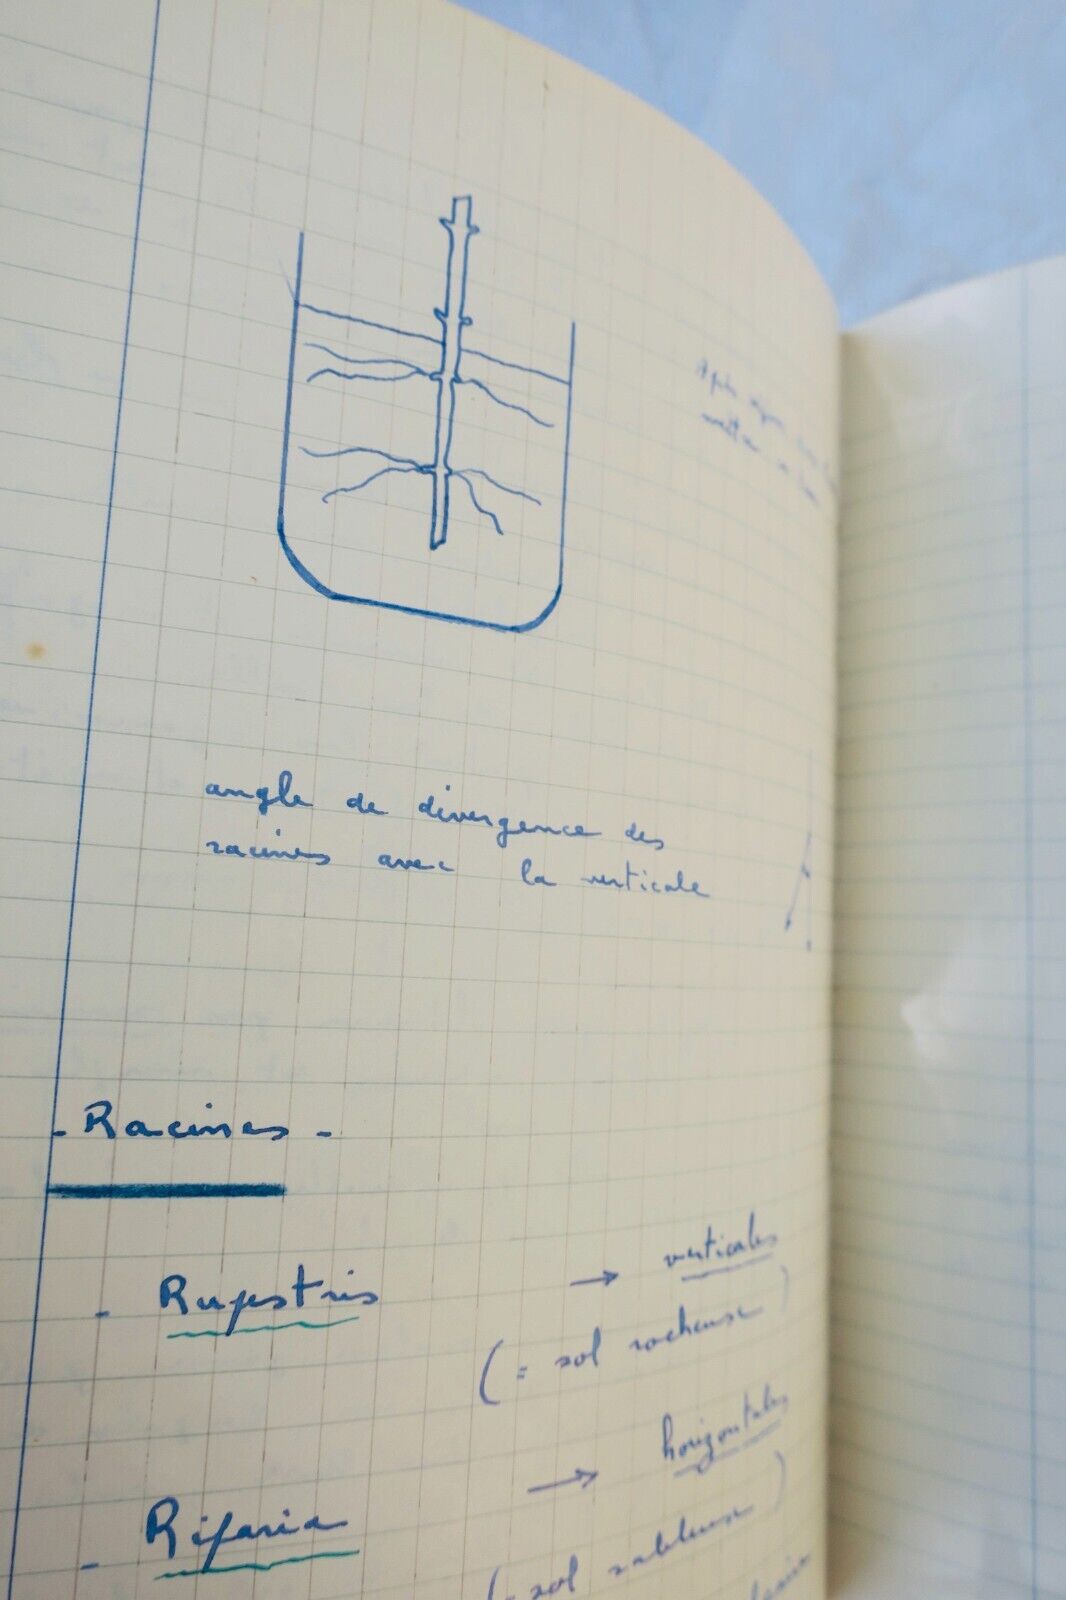 Après
angle de divergence des
racines avec la verticale
- Racines -
- Rupestris → verticales
(= sol rocheuse)
- Riparia → horizontales
(= sol sableuse)